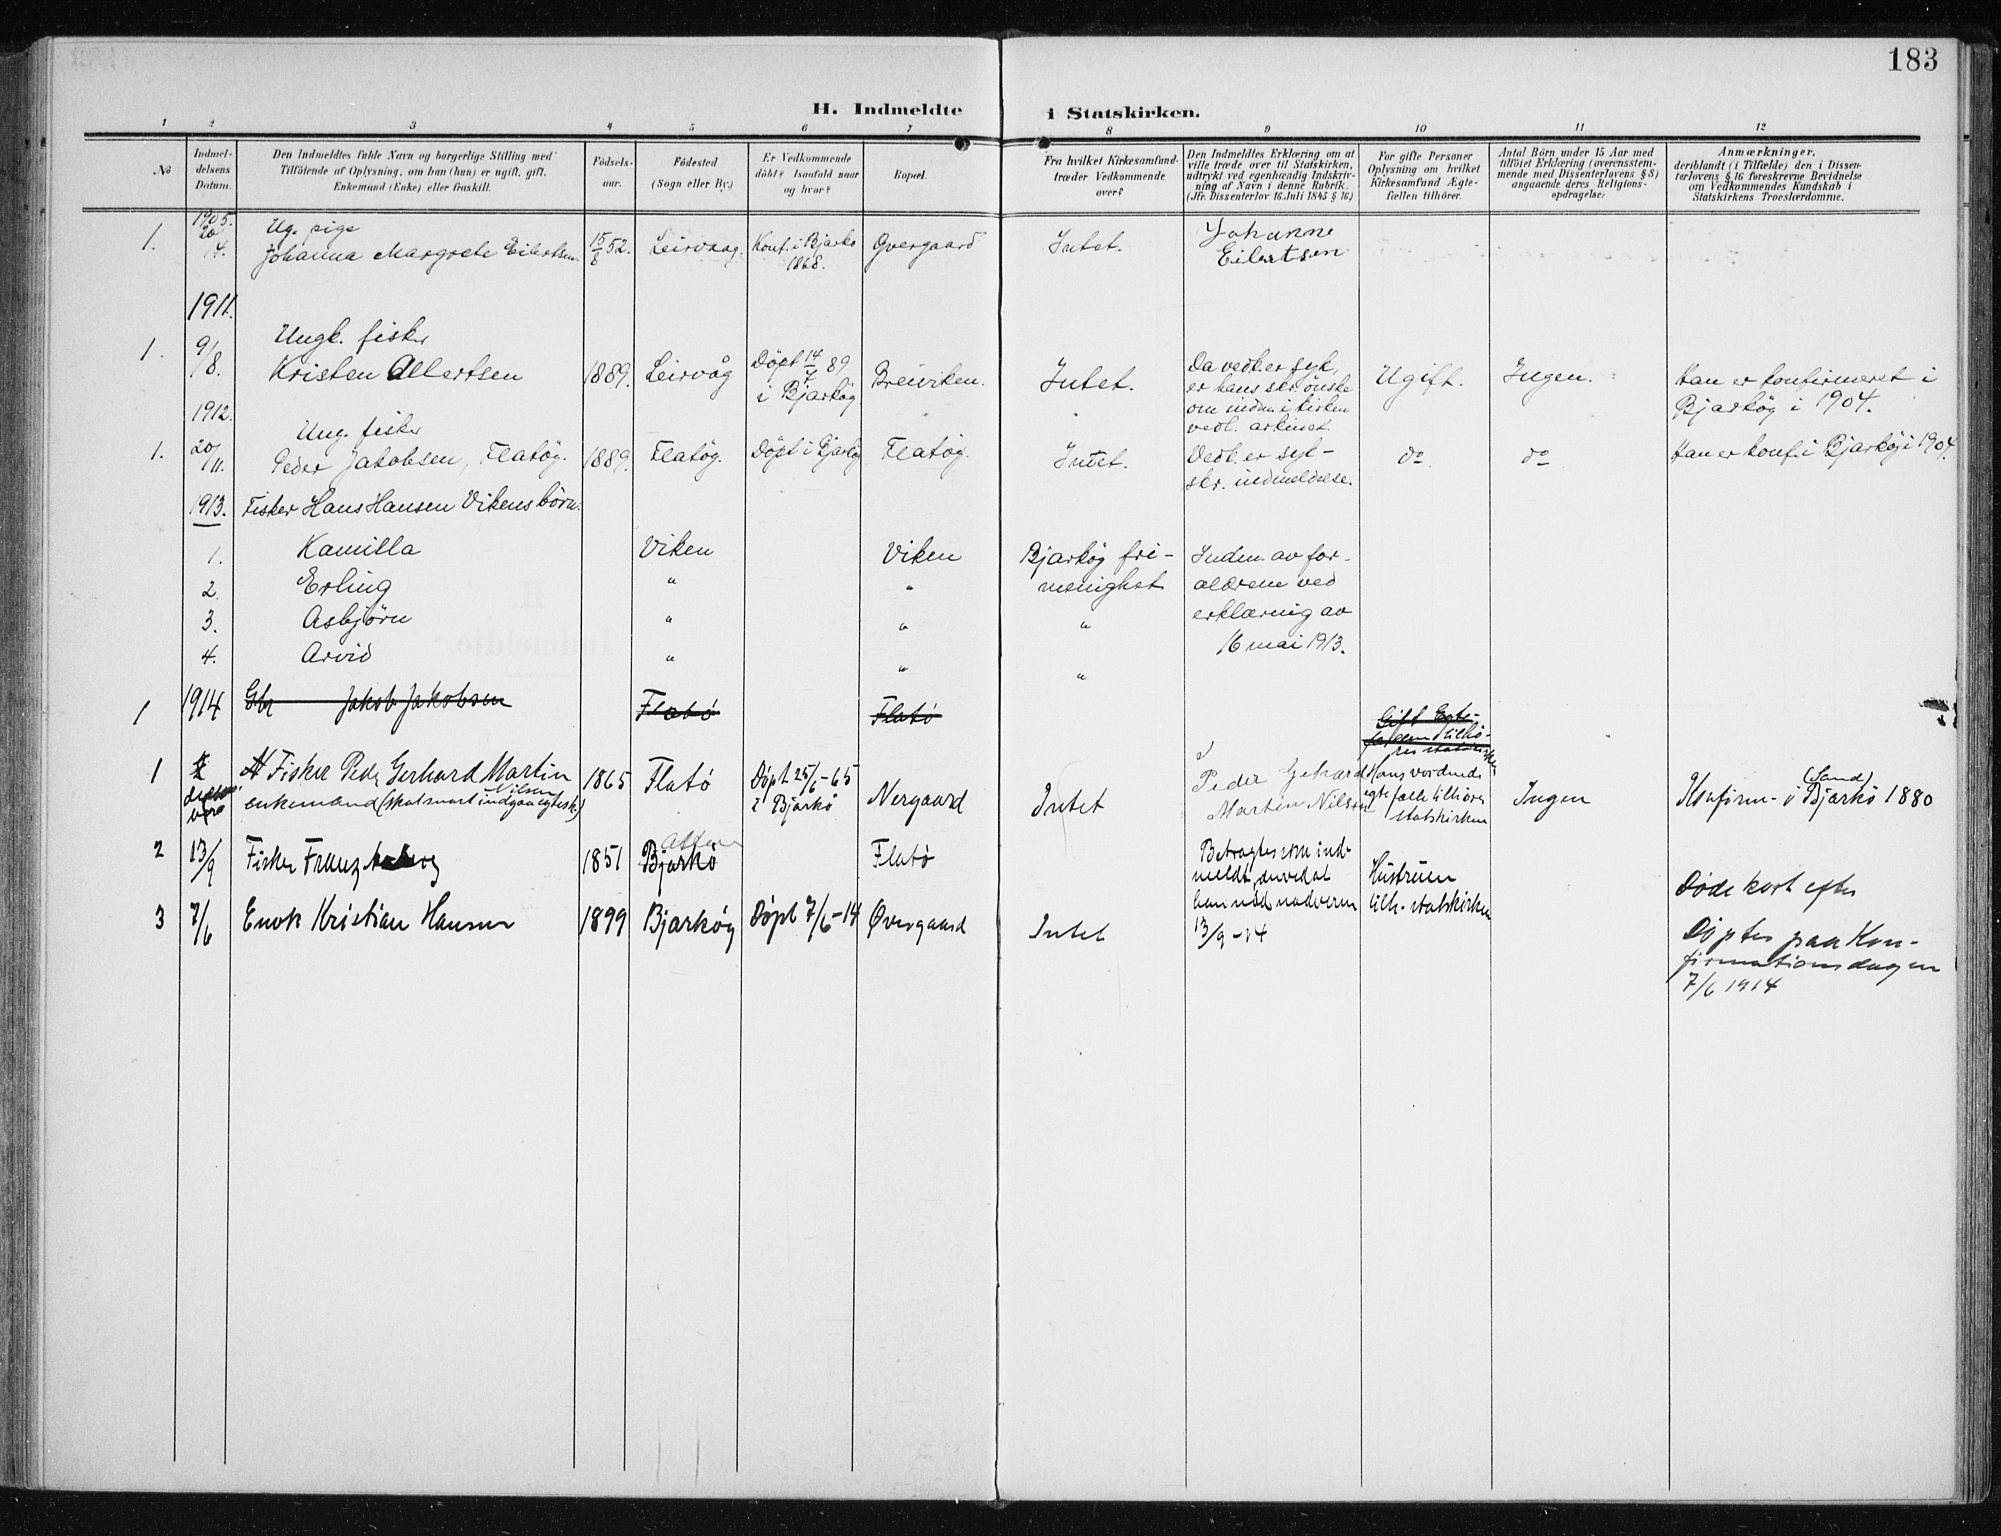 183
H. Indmeldte i Statskirken.
1 2 3 4 5 6 7 8 9 10 11 12
No
Indmel-
delsens
Datum.
Den Indmeldtes fulde Navn og borgerlige Stilling med
Tilföiende af Oplysning, om han (hun) er ugift, gift,
Enkemand (Enke) eller fraskilt.
Födsels-
aar.
Födested
(Sogn eller By.)
Er Vedkommende
döbt? Isaafald naar
og hvor?
Bopæl.
Fra hvilket Kirkesamfund
træder Vedkommende
over?
Den Indmeldtes Erklæring om at
ville træde over til Statskirken,
udtrykt ved egenhændig Indskriv-
ning af Navn i denne Rubrik.
(Jfr. Dissenterlov 16 Juli 1845 § 16.)
For gifte Personer
Oplysning om hvilket
Kirkesamfund Ægte-
fællen tilhörer.
Antal Börn under 15 Aar med
tilföiet Erklæring (overensstem-
mende med Dissenterlovens § 8)
angaaende deres Religions-
opdragelse:
Anmærkninger,
deriblandt (i Tilfælde) den i Dissen-
terlovens § 16 foreskrevne Bevidnelse
om Vedkommendes Kundskab i
Statskirkens Troeslærdomme.
1905.
1. 20/4. Ug. pige
Johanna Margrete Eilertsen. 15/8 52. Leirvaag. Konf. i Bjarkø
1868. Øvergaard Intet. Johanne
Eilertsen
1911.
1. 9/8. Ungk. fisker
Kristen Albertsen 1889. Leirvåg Døpt 14/7 89
i Bjarkøy Breiviken. Intet. Da vedk. er syk,
er hans skr. ønske
om indm. i kirken
vedl. arkivet Ugift. Ingen. Han er konfirmeret i
Bjarkøy i 1904.
1912.
1. 20/11. Ung. fisker
Peder Jakobsen, Flatøy. 1889. Flatøy. Døpt i Bjarkøy Flatøy. Intet. Vedl. er
skr. indmeldelse. do do Han er konf. i Bjarkøy i 1904.
1913. Fisker Hans Hansen Vikens børn.
1. Kamilla Viken Viken Bjarkøy fri-
menighet Indm. av for-
ældrene ved
erklæring av
16 mai 1913.
2. Erling " "
3. Asbjørn " " "
4. Arvid " " "
1 1914 Gbr Jakob Jakobsen Flatø Flatø Gift Egte-
tilhø-
res statskirken
1 Fisker Peder Gerhard Martin
Nilsen
enkemand (skal snart indgaa egtesk.) 1865 Flatø Døpt 25/6-65
i Bjarkø Nergaard Intet Peder Gehard
Martin Nilsen Hans vordende
egtefælle tilhører
statskirken Ingen Konfirm. i Bjarkø (Sand) 1880
2 13/9 Fisker Franz 1851 Bjarkø Flatø Betragtes som ind-
meldt, derved at
han nød nadveren
13/9-14 Hustruen
tilh. statskirken Døde kort efter
3 7/6 Enok Kristian Hansen 1899 Bjarkøy Døpt 7/6-14 Øvergaard Intet Døptes paa Kon-
firmationsdagen
7/6 1914